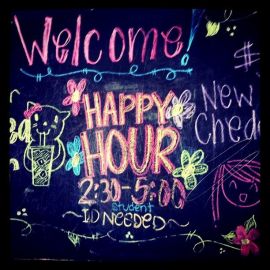 Welcome!
$
HAPPY
New
HOUR
Ched
2:30-5:00
student
~ I.D NEEDED ~